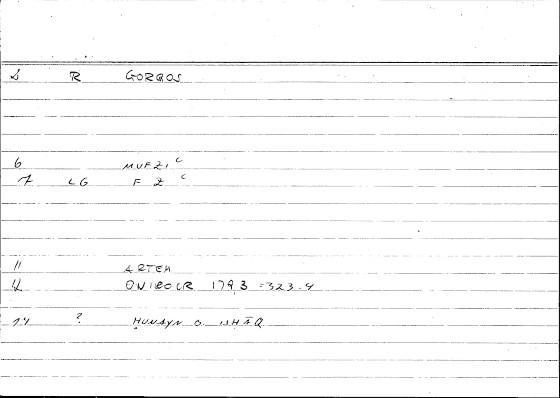 R GORGOS
6 MUFZIᶜ
7 LG F Z ᶜ
11 ARTEM
12 ONIROCR 179,3 = 323.4
14 ? ḤUNAYN B. ISḤĀQ